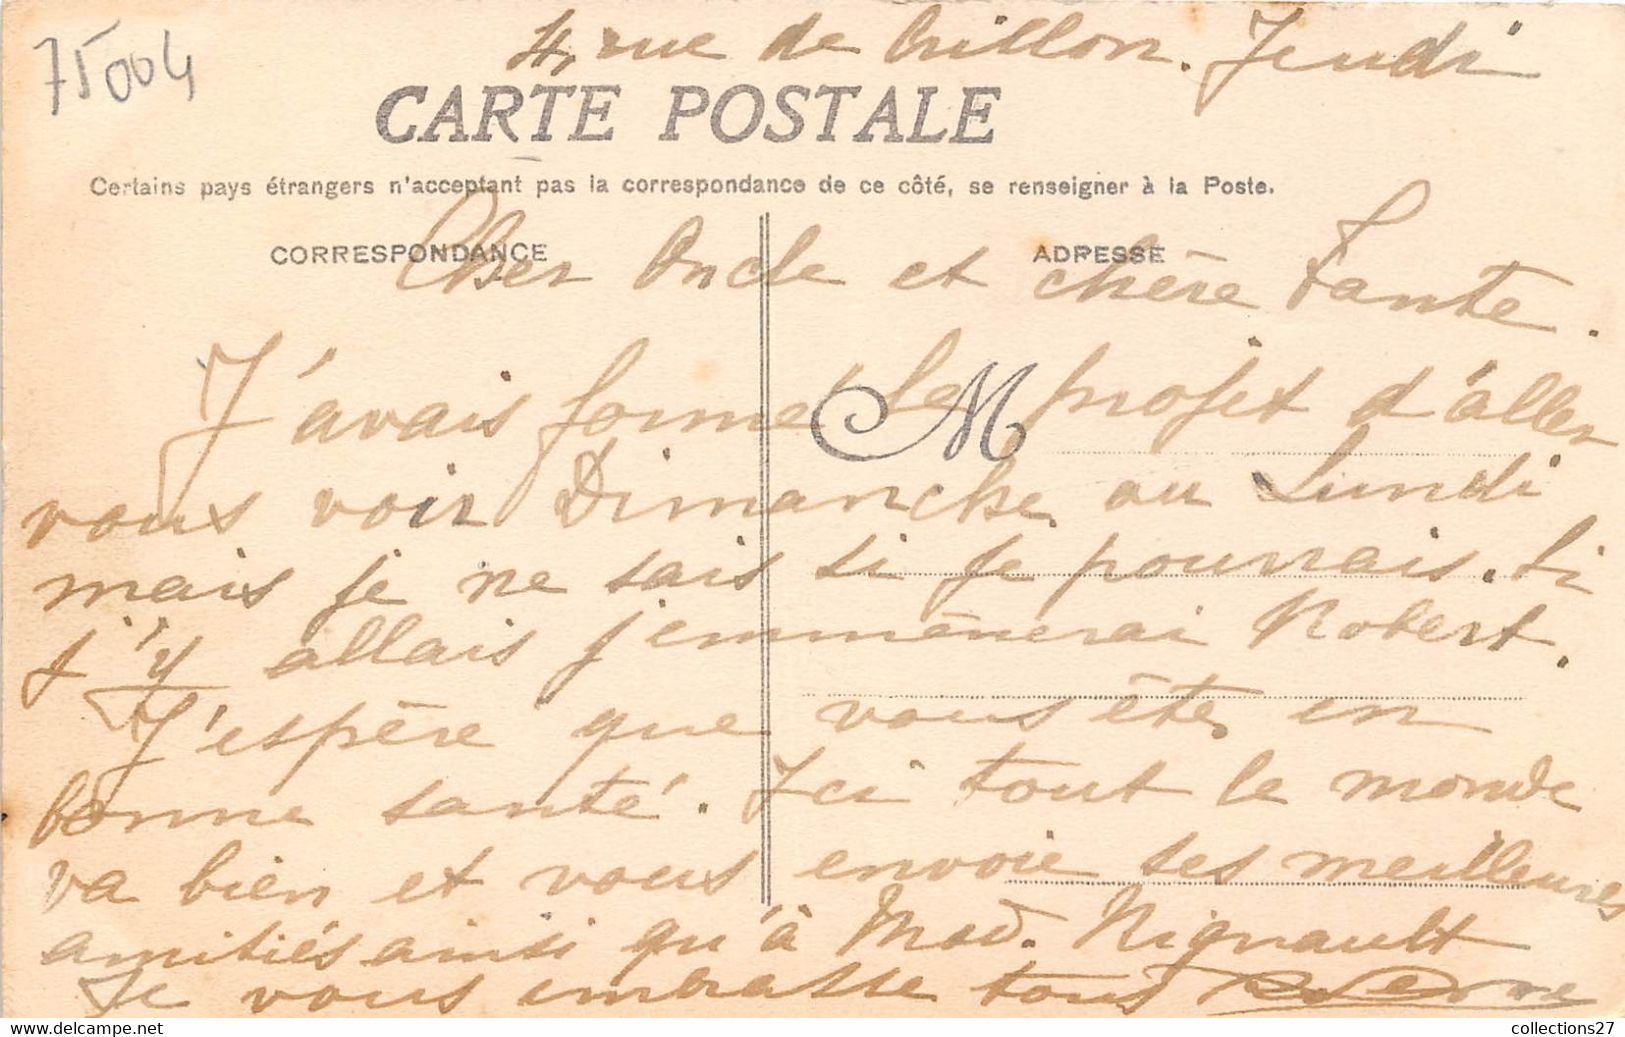 75004
4, rue de Crillon. Jeudi
CARTE POSTALE
Certains pays étrangers n'acceptant pas la correspondance de ce côté, se renseigner à la Poste.
CORRESPONDANCE
ADRESSE
Cher Oncle et chère Tante.
M
J'avais formé le projet d'aller
vous voir Dimanche ou Lundi
mais je ne sais si je pourrais. Si
j'y allais j'emmènerai Robert.
J'espère que vous êtes en
bonne santé. Ici tout le monde
va bien et vous envoie ses meilleures
amitiés ainsi qu'à Mad. Nignault
Je vous embrasse tous
collections27